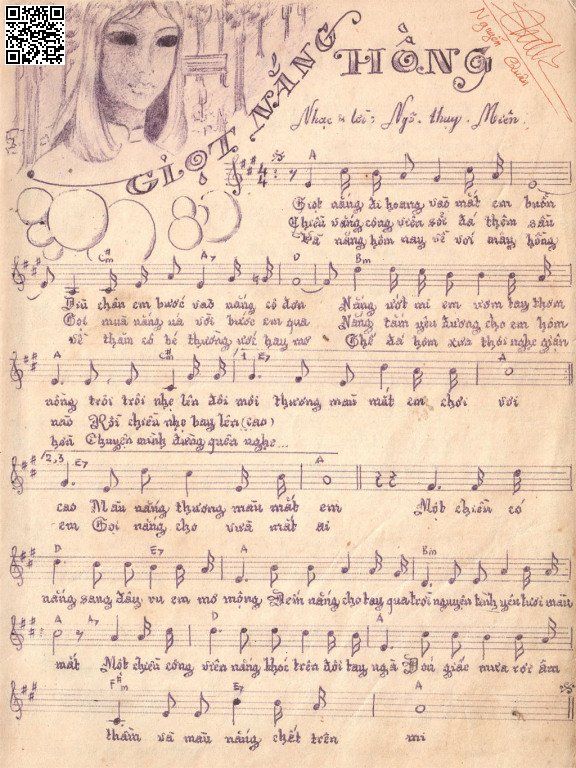 GIỌT NẮNG HỒNG
Nguyễn Quân
Nhạc & lời: Ngô. thụy. Miên.
A
Giọt nắng đi hoang vào mắt em buồn
Chiều vàng công viên sỏi đá thêm sầu
Và nắng hôm nay về với mây hồng
C#m A7 D Bm
Dìu chân em bước vào nắng cô đơn Nắng ướt mi em ươm tay thơm
Gọi mưa nắng và với bước em qua Nắng tắm yêu đương cho em hôm
về thăm cô bé thường với hay mơ Ghế đá hôm xưa thôi nghe giận
A C# 1 E7 A
nồng trôi trôi nhẹ lên đôi môi thương màu mắt em chơi vơi
nào Rồi chiều nhẹ bay lên (cao)
hờn Chuyện mình đừng quên nghe...
2,3 E7 A
cao Màu nắng thương màu mắt em Một chiều có
em Gọi nắng cho vừa mắt ai
D E7 A Bm
nắng sang đây ru em mơ mòng Đem nắng cho tay qua trời nguyên tình yêu tươi màu
E7 A7 D A
mắt Một chiều công viên nắng khóc trên đôi tay ngà Đón giấc mưa rơi âm
F#m E7 A
thầm và màu nắng chết trên mi